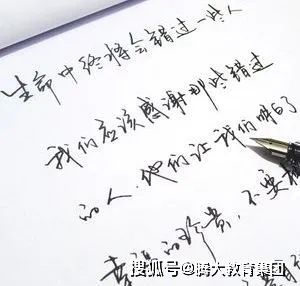 生命中终将会错过一些人
我们应该感谢那些错过
的人,他们让我们明白了
幸福的珍贵,不要
搜狐号@腾大教育集团